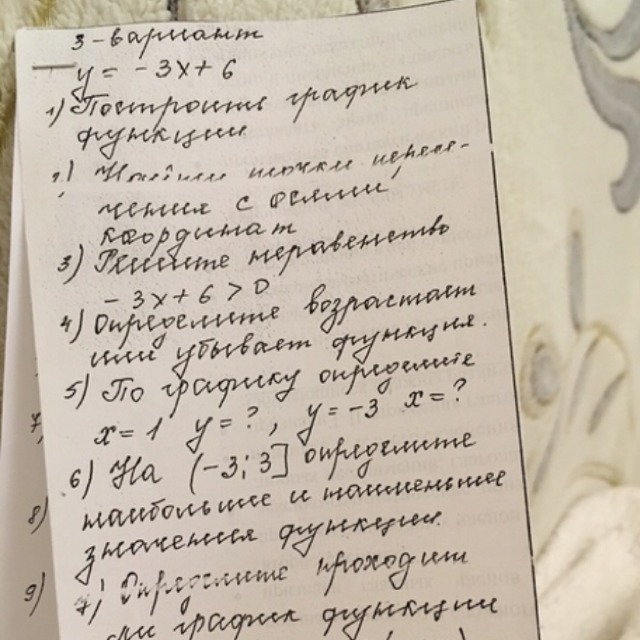 3-вариант
y = -3x + 6
1) Построить график
функции
2) Найти точки пересе-
чения с осями,
координат
3) Решите неравенство
-3x + 6 > 0
4) Определите возрастает
или убывает функция.
5) По графику определите
x = 1 y = ?, y = -3 x = ?
6) На (-3; 3] определите
наибольшие и наименьшие
значения функции.
7) Определите проходит
ли график функции
7)
8)
9)